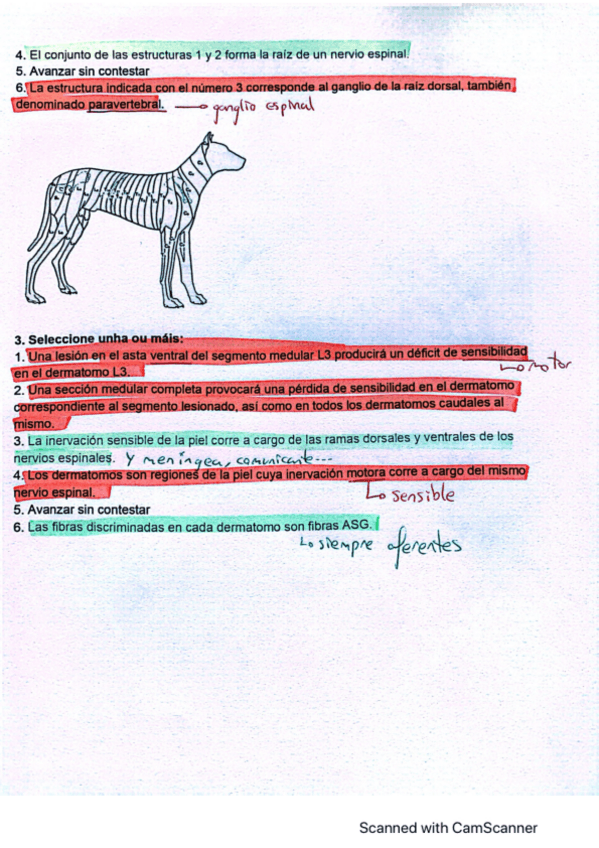 4. El conjunto de las estructuras 1 y 2 forma la raíz de un nervio espinal.
5. Avanzar sin contestar
6. La estructura indicada con el número 3 corresponde al ganglio de la raíz dorsal, también
denominado paravertebral. → ganglio espinal
3. Seleccione unha ou máis:
1. Una lesión en el asta ventral del segmento medular L3 producirá un déficit de sensibilidad
en el dermatomo L3. ↳ motor
2. Una sección medular completa provocará una pérdida de sensibilidad en el dermatomo
correspondiente al segmento lesionado, así como en todos los dermatomos caudales al
mismo.
3. La inervación sensible de la piel corre a cargo de las ramas dorsales y ventrales de los
nervios espinales. y meníngea, comunicante...
4. Los dermatomos son regiones de la piel cuya inervación motora corre a cargo del mismo
nervio espinal. ↳ sensible
5. Avanzar sin contestar
6. Las fibras discriminadas en cada dermatomo son fibras ASG.
↳ siempre aferentes
Scanned with CamScanner